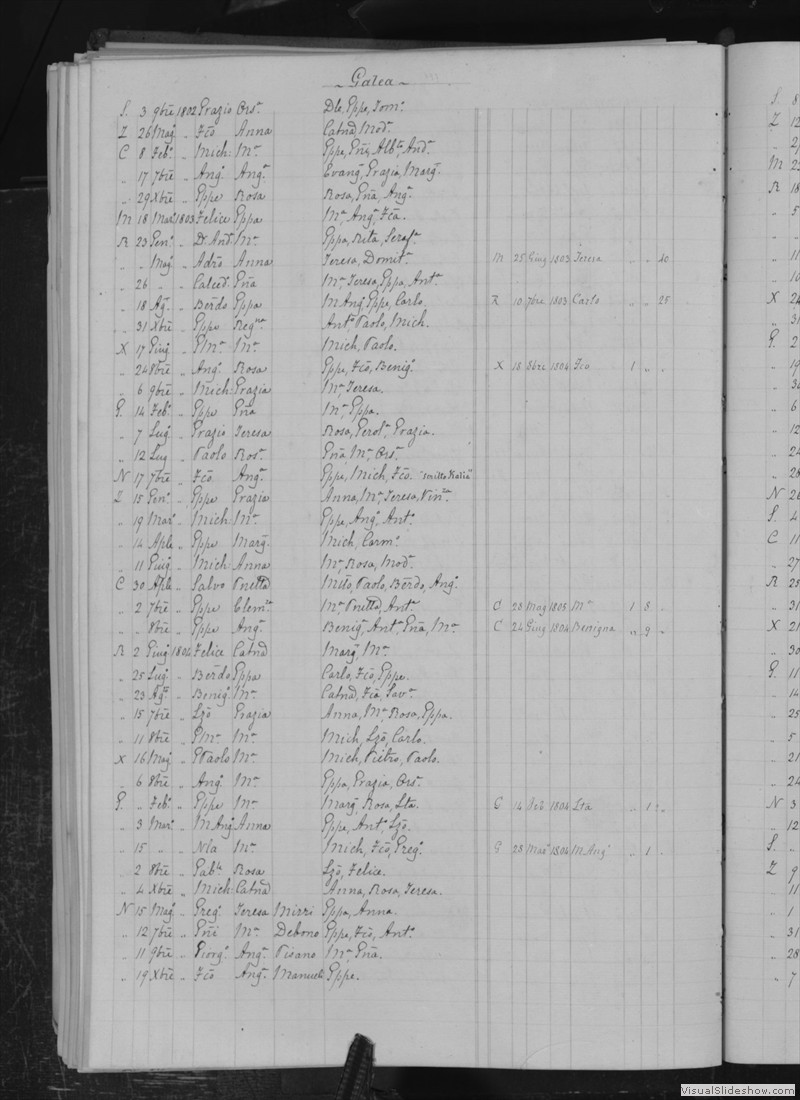 Galea
S. 3 9bre 1802 Grazio Ors.a Dle, Eppe, Tom.o
Z 26 Mag. „ Fco Anna Catnd, Mod.o
C 8 Feb.o „ Mich: M.a Eppe, Pna, Alb.a, And.
„ 17 7bre „ Ang. Ang.a Evang., Grazia, Marg.
„ 29 Xbre „ Eppe Rosa Rosa, Pna, Ang.
M 18 Mar. 1803 Felice Eppa M.a, Ang., Fca.
R 23 Gen.o „ D. Ant. M.a Eppa, Rita, Seraf.a
„ „ Mag. „ Adro Anna Teresa, Domit.a M 25 Giug 1803 Teresa „ „ 10
„ 26 „ „ Calced. Pna M.a, Teresa, Eppa, Ant.a
„ 18 Ag. „ Berdo Eppa M Ang, Eppe, Carlo. R 10 7bre 1803 Carlo „ „ 25
„ 31 Xbre „ Eppe Reg.na Ant.o, Paolo, Mich.
X 17 Giug „ GMa. M.a Mich, Paolo.
„ 24 8bre „ Ang. Rosa Eppe, Fco, Benig. X 18 8bre 1804 Fco 1 „ „
„ 6 9bre „ Mich: Grazia M.a, Teresa.
G. 14 Feb.o „ Eppe Pna M.a, Eppa.
„ 7 Lug. „ Grazio Teresa Rosa, Gerol.a, Grazia.
„ 12 Lug „ Paolo Ros.a Pna, M.a, Ors.a
N 17 7bre „ Fco Ang.a Eppe, Mich, Fco.
Z 15 Gen.o „ Eppe Grazia Anna, M.a, Teresa, Vin.za
„ 19 Mar. „ Mich: M.a Eppe, Ang., Ant.
„ 14 Aple „ Eppe Marg. Mich, Carm.o
„ 11 Giug. „ Mich: Anna M.a, Rosa, Mod.
C 30 Aple „ Salvo Pnetta Paolo, Berdo, Ang.
„ 2 7bre „ Eppe Clem.za M.a, Pnetta, Ant.a C 23 Mag 1805 M.a 1 8 „
„ „ 8bre „ Eppe Ang.a Benig., Ant., Pna, M.a C 24 Giug 1804 Benigna „ 9 „
R 2 Giug 1804 Felice Catnd Marg., M.a
„ 25 Lug. „ Berdo Eppa Carlo, Fco, Eppe.
„ 23 Ag.o „ Benig. M.a Catnd, Fca, Sav.a
„ 15 7bre „ Lzo Grazia Anna, M.a, Rosa, Eppa.
„ 11 8bre „ GMa. M.a Mich, Lzo, Carlo.
X 16 Mag „ GPaolo M.a Mich, Pietro, Paolo.
„ 6 8bre „ Ang. M.a Eppa, Grazia, Ors.a
G. „ Feb.o „ Eppe M.a Marg., Rosa, Lta. G 14 Feb 1804 Lta „ 1 „
„ 3 Mar. „ M Ang. Anna Eppe, Ant., Lzo.
„ 15 „ „ Nla M.a Mich, Fco, Greg. G 28 Mar. 1804 M Ang. „ 1 „
„ 2 8bre „ Gab.le Rosa Lzo, Felice.
„ 4 Xbre „ Mich: Catnd Anna, Rosa, Teresa.
N 15 Mag. „ Greg. Teresa Mizzi Eppa, Anna.
„ 12 7bre „ Pni M.a Debono Eppe, Fco, Ant.
„ 11 9bre „ Giorg. Ang.a Pisano M.a, Pna.
„ 19 Xbre „ Fco Ang.a Manueli Eppe.
VisualSlideshow.com